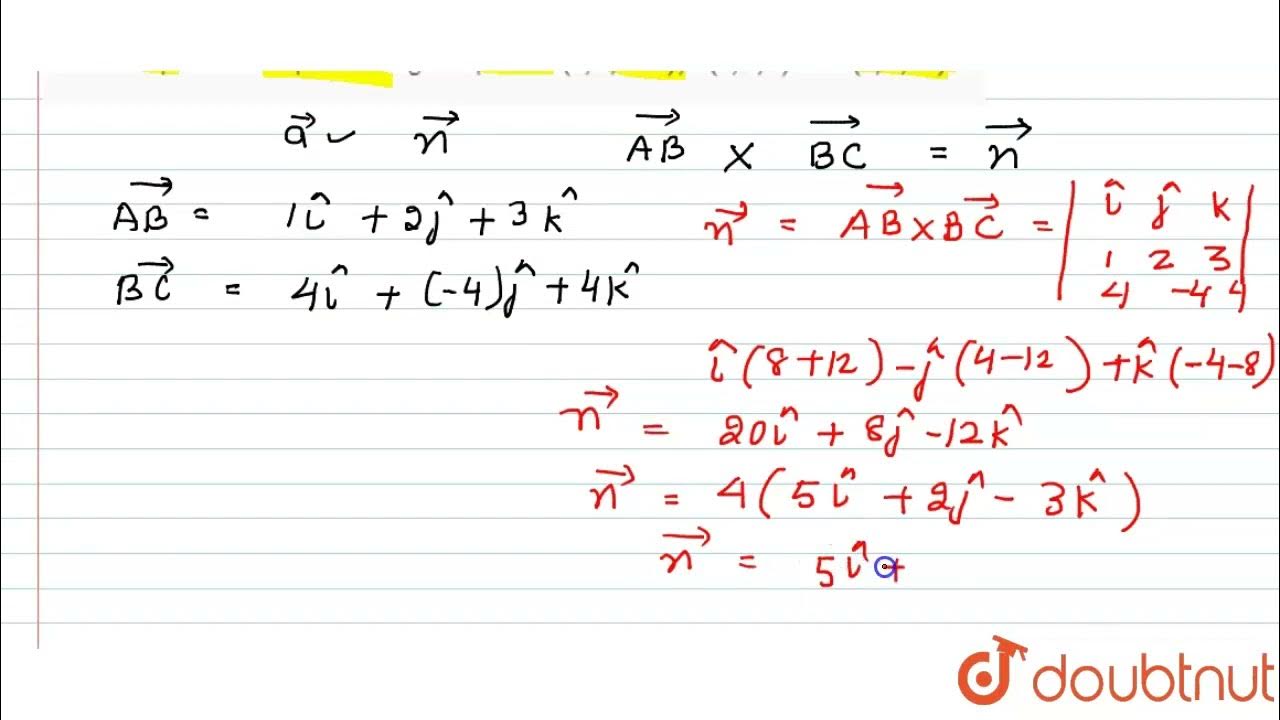 a⃗ ✓ n⃗ AB⃗ × BC⃗ = n⃗
AB⃗ = 1î + 2ĵ + 3k̂
BC⃗ = 4î + (-4)ĵ + 4k̂
n⃗ = AB⃗ × BC⃗ = | î ĵ k |
| 1 2 3 |
| 4 -4 4 |
î(8+12) - ĵ(4-12) + k̂(-4-8)
n⃗ = 20î + 8ĵ - 12k̂
n⃗ = 4(5î + 2ĵ - 3k̂)
n⃗ = 5î +
doubtnut